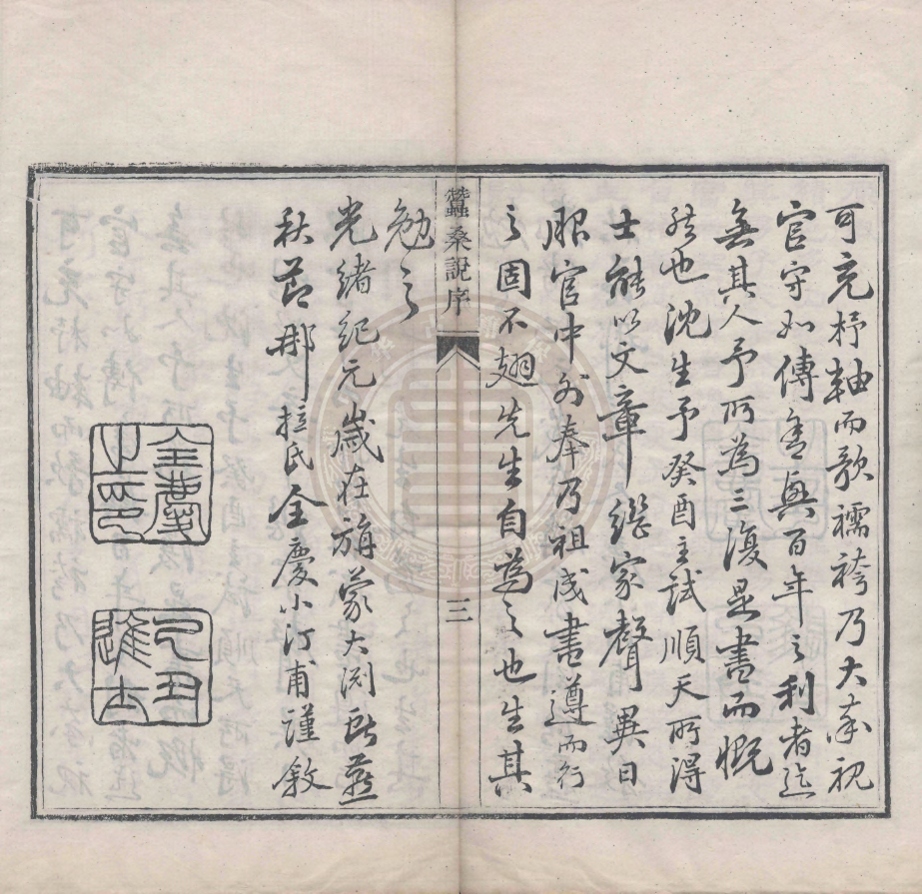 可充杼軸而歌襦袴乃大率視
官守如傳舍興百年之利者迄
無其人予所為三復是書而慨
然也沈生予癸酉主試順天所得
士能以文章繼家聲異日
服官中外奉乃祖成書遵而行
之固不翅先生自為之也生其
蠶桑說序
三
勉之
光緒紀元歲在旃蒙大淵獻燕
秋節那拉氏全慶小汀甫謹敘
全慶之印
己丑進士